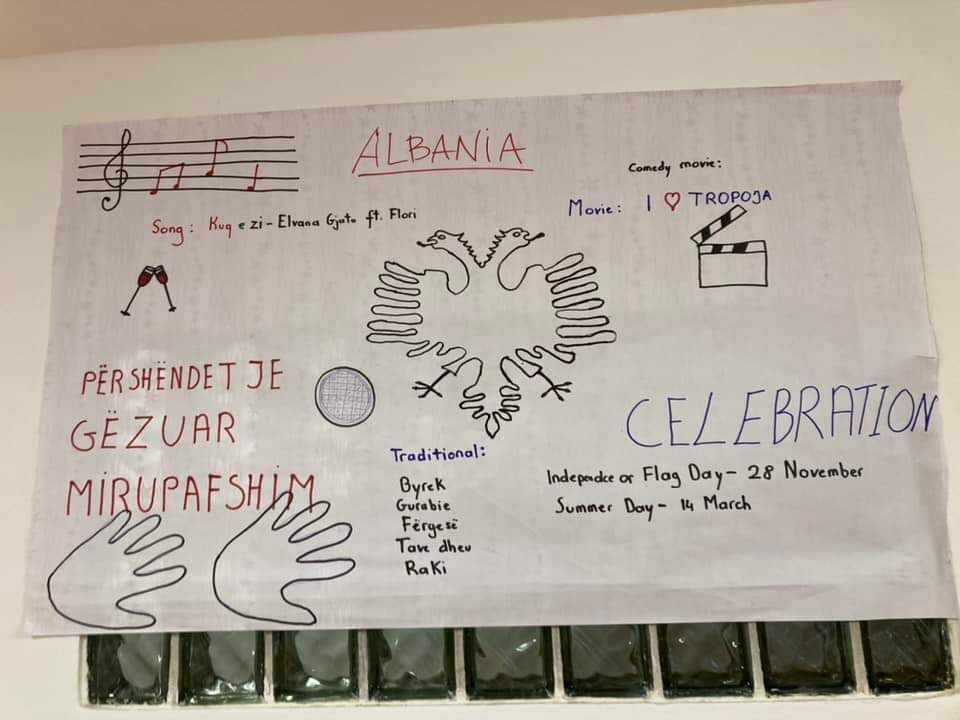 ALBANIA
Comedy movie:
Movie: I ♡ TROPOJA
Song: Kuq e zi - Elvana Gjata ft. Flori
PËRSHËNDETJE
GËZUAR
MIRUPAFSHIM
CELEBRATION
Independce or Flag Day - 28 November
Summer Day - 14 March
Traditional:
Byrek
Gurabie
Fërgesë
Tave dheu
Raki